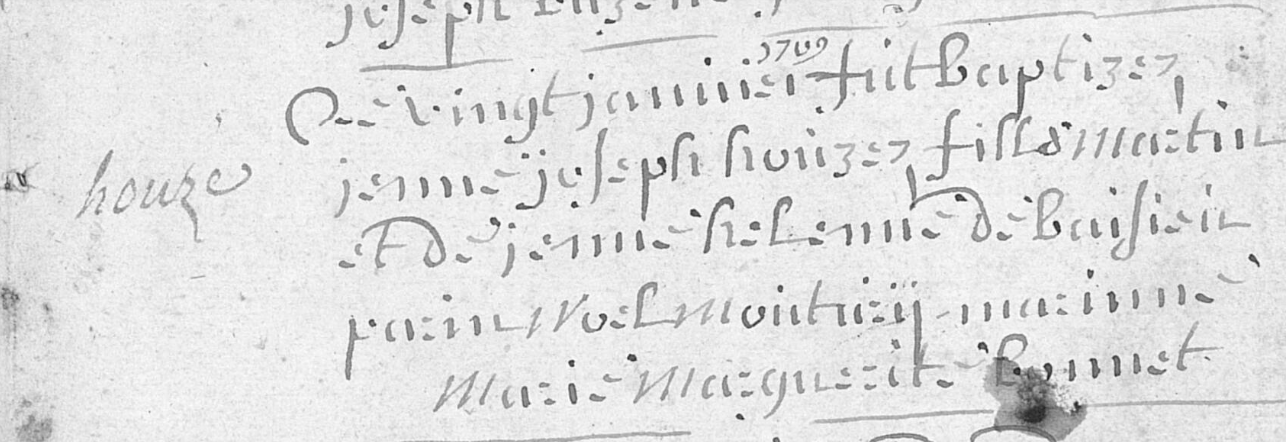 joseph
1709
Le vingt janvier fut baptizez
houze
jenne joseph houzez fills de martin
et de jenne helenne de baisieu
parin Noel mouturij marinne
Marie Marguerite bonnet